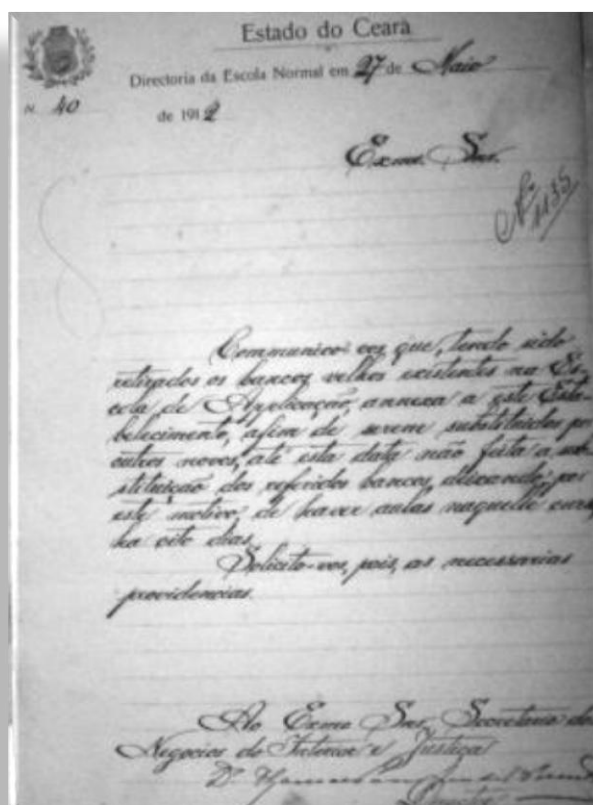 Estado do Ceará
Directoria da Escola Normal em 27 de Maio
N. 40
de 1912
Exmo. Snr.
Nº 1135
Communico-vos que, tendo sido
retirados os bancos velhos existentes na Es-
cola de Applicação, annexa a este Esta-
belecimento, afim de serem substituidos por
outros novos, até esta data não feita a sub
stituição dos referidos bancos, deixando, por
este motivo, de haver aulas naquelle curso,
ha oito dias.
Solicito-vos, pois, as necessarias
providencias.
Ao Exmo Snr. Secretario dos
Negocios do Interior e Justiça
Dr. Thomaz